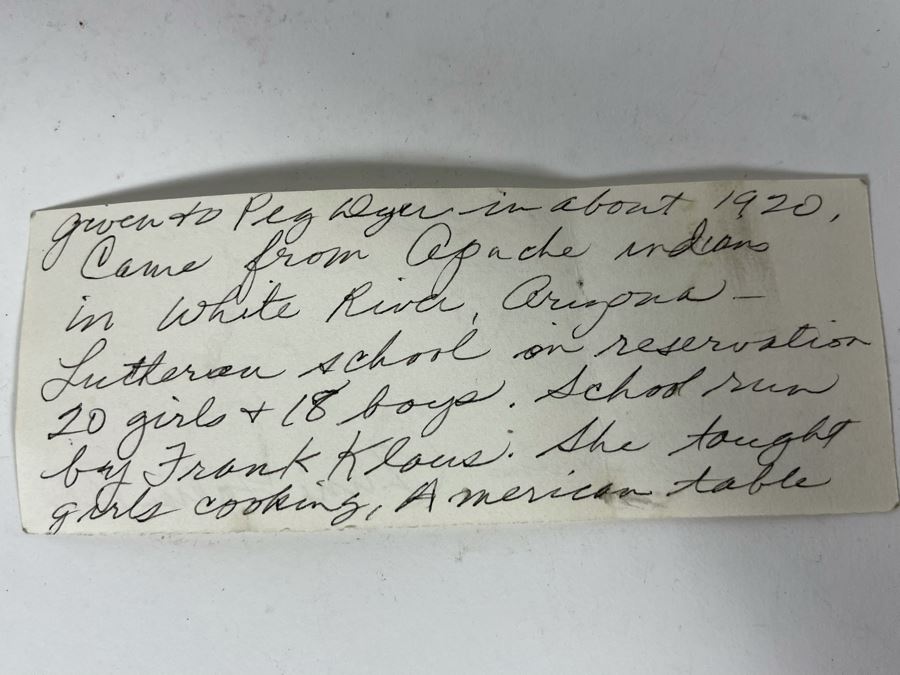 given to Peg Dyer in about 1920.
Came from Apache indians
in White River, Arizona –
Lutheran school on reservation
20 girls + 18 boys. School run
by Frank Klaus. She taught
girls cooking, American table